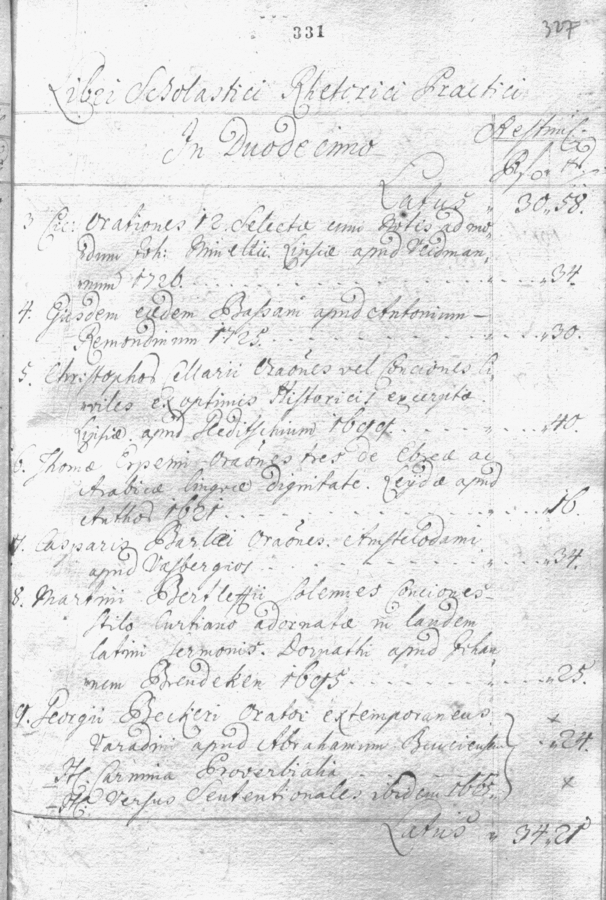 331
327
Libri Scholastici Rhetorici Practici
In Duodecimo
Aestimat.
Latus „ 30„58.
3 Cic: Orationes 12. Selectæ cum Notis ad mo„
dum Joh: Minellii. Lipsiæ apud Veidman„
num 1726. „ „34.
4. Ejusdem eædem Bassani apud Antonium
Remondinum 1725. „ „30.
5. Christophori Cellarii Oraōnes vel Conciones Ci„
viles ex optimis Historicis excerptæ.
Lipsiæ apud 1699. „ „40.
6. Thomæ Erpenii Oraōnes tres de Ebrææ ac
Arabicæ linguæ dignitate. Leydæ apud
Authorē 1621. „ „16.
7. Casparis Barlæi Oraōnes. Amstelodami
apud „ „34.
8. Martini solennes Conciones
Stilo Curtiano adornatæ in laudem
latini sermonis. apud Johan
nem Brendeken 1695. „ „25.
9. Georgii Beckeri Orator extemporaneus
Varadini apud Abrahamum „ „24.
– It. Carmina Proverbialia ×
– It. Versus Sententionales Ibidem ×
Latus „ 34„21